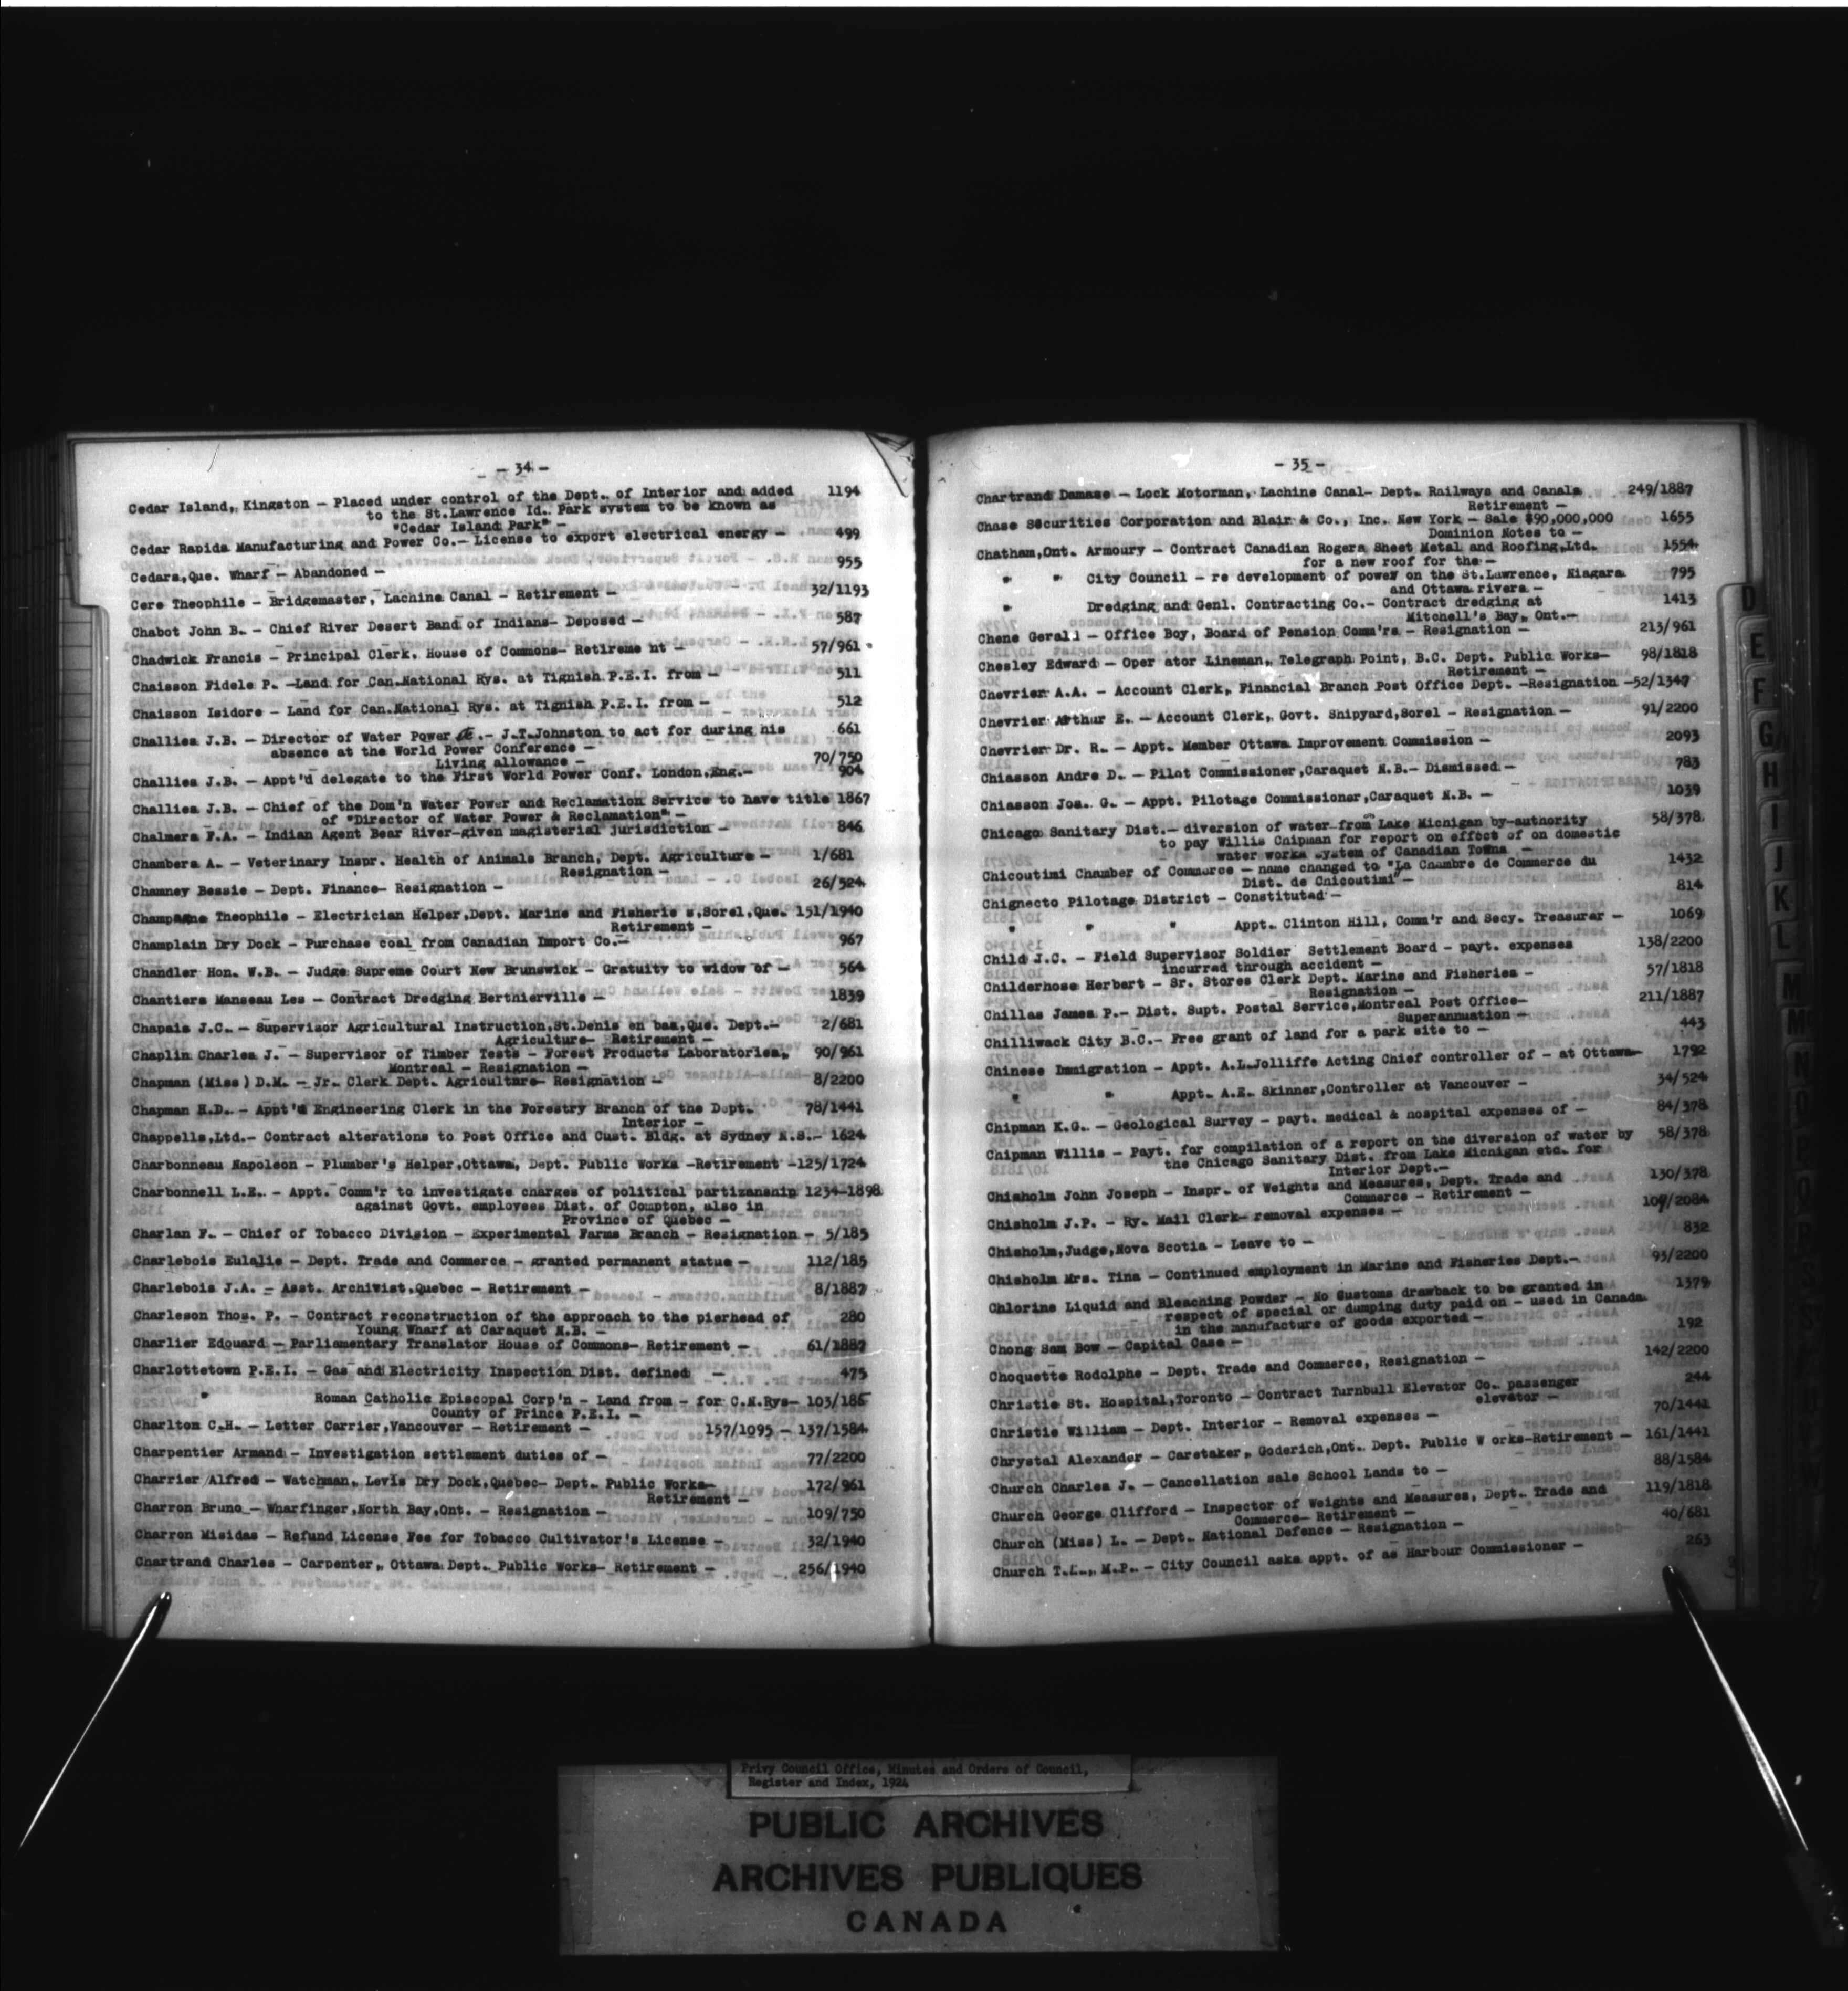 - 34 -
Cedar Island, Kingston - Placed under control of the Dept. of Interior and added 1194
to the St.Lawrence Id. Park system to be known as
"Cedar Island Park" -
Cedar Rapids Manufacturing and Power Co.- License to export electrical energy - 499
Cedars,Que. Wharf - Abandoned - 955
Cere Theophile - Bridgemaster, Lachine Canal - Retirement - 32/1193
Chabot John B. - Chief River Desert Band of Indians- Deposed - 587
Chadwick Francis - Principal Clerk, House of Commons- Retireme nt - 57/961
Chaisson Fidele P. -Land for Can.National Rys. at Tignish P.E.I. from - 511
Chaisson Isidore - Land for Can.National Rys. at Tignish P.E.I. from - 512
Challies J.B. - Director of Water Power &c.- J.T.Johnston to act for during his 661
absence at the World Power Conference -
Living allowance - 70/750
Challies J.B. - Appt'd delegate to the First World Power Conf. London,Eng.- 904
Challies J.B. - Chief of the Dom'n Water Power and Reclamation Service to have title 1867
of "Director of Water Power & Reclamation" -
Chalmers F.A. - Indian Agent Bear River-given magisterial jurisdiction - 846
Chambers A. - Veterinary Inspr. Health of Animals Branch, Dept. Agriculture - 1/681
Resignation -
Chamney Bessie - Dept. Finance- Resignation - 26/524
Champagne Theophile - Electrician Helper,Dept. Marine and Fisherie s,Sorel,Que. 151/1940
Retirement -
Champlain Dry Dock - Purchase coal from Canadian Import Co.- 967
Chandler Hon. W.B. - Judge Supreme Court New Brunswick - Gratuity to widow of - 564
Chantiers Manseau Les - Contract Dredging Berthierville - 1839
Chapais J.C. - Supervisor Agricultural Instruction,St.Denis en bas,Que. Dept.- 2/681
Agriculture- Retirement -
Chaplin Charles J. - Supervisor of Timber Tests - Forest Products Laboratories, 90/961
Montreal - Resignation -
Chapman (Miss) D.M. - Jr. Clerk Dept. Agriculture- Resignation - 8/2200
Chapman H.D. - Appt'd Engineering Clerk in the Forestry Branch of the Dept. 78/1441
Interior -
Chappells,Ltd.- Contract alterations to Post Office and Cust. Bldg. at Sydney N.S.- 1624
Charbonneau Napoleon - Plumber's Helper,Ottawa, Dept. Public Works -Retirement -125/1724
Charbonnell L.E. - Appt. Comm'r to investigate charges of political partizanship 1234-1898
against Govt. employees Dist. of Compton, also in
Province of Quebec -
Charlan F. - Chief of Tobacco Division - Experimental Farms Branch - Resignation - 5/185
Charlebois Eulalie - Dept. Trade and Commerce - granted permanent statue - 112/185
Charlebois J.A. - Asst. Archivist,Quebec - Retirement - 8/1887
Charleson Thos. P. - Contract reconstruction of the approach to the pierhead of 280
Young Wharf at Caraquet N.B. -
Charlier Edouard - Parliamentary Translator House of Commons- Retirement - 61/1887
Charlottetown P.E.I. - Gas and Electricity Inspection Dist. defined - 475
" Roman Catholic Episcopal Corp'n - Land from - for C.N.Rys- 103/185
County of Prince P.E.I. -
Charlton C.H. - Letter Carrier,Vancouver - Retirement - 157/1095 - 137/1584
Charpentier Armand - Investigation settlement duties of - 77/2200
Charrier Alfred - Watchman, Levis Dry Dock,Quebec- Dept. Public Works- 172/961
Retirement -
Charron Bruno - Wharfinger,North Bay,Ont. - Resignation - 109/750
Charron Misidas - Refund License Fee for Tobacco Cultivator's License - 32/1940
Chartrand Charles - Carpenter, Ottawa Dept. Public Works- Retirement - 256/1940
- 35 -
Chartrand Damase - Lock Motorman, Lachine Canal- Dept. Railways and Canals 249/1887
Retirement -
Chase Securities Corporation and Blair & Co., Inc. New York - Sale $90,000,000 1655
Dominion Notes to -
Chatham,Ont. Armoury - Contract Canadian Rogers Sheet Metal and Roofing,Ltd. 1554
for a new roof for the -
" " City Council - re development of power on the St.Lawrence, Niagara 795
and Ottawa rivers -
" Dredging and Genl. Contracting Co.- Contract dredging at 1413
Mitchell's Bay, Ont.-
Chene Gerald - Office Boy, Board of Pension Comm'rs - Resignation - 213/961
Chesley Edward - Oper ator Lineman, Telegraph Point, B.C. Dept. Public Works- 98/1818
Retirement -
Chevrier A.A. - Account Clerk, Financial Branch Post Office Dept. -Resignation -52/1347
Chevrier Arthur E. - Account Clerk, Govt. Shipyard,Sorel - Resignation - 91/2200
Chevrier Dr. R. - Appt. Member Ottawa Improvement Commission - 2093
Chiasson Andre D. - Pilot Commissioner,Caraquet N.B.- Dismissed - 783
Chiasson Jos. G. - Appt. Pilotage Commissioner,Caraquet N.B. - 1039
Chicago Sanitary Dist.- diversion of water from Lake Michigan by-authority 58/378
to pay Willis Chipman for report on effect of on domestic
water works system of Canadian Towns -
Chicoutimi Chamber of Commerce - name changed to "La Chambre de Commerce du 1432
Dist. de Chicoutimi" -
Chignecto Pilotage District - Constituted - 814
" " " Appt. Clinton Hill, Comm'r and Secy. Treasurer - 1069
Child J.C. - Field Supervisor Soldier Settlement Board - payt. expenses 138/2200
incurred through accident -
Childerhose Herbert - Sr. Stores Clerk Dept. Marine and Fisheries - 57/1818
Resignation -
Chillas James P.- Dist. Supt. Postal Service,Montreal Post Office- 211/1887
Superannuation -
Chilliwack City B.C.- Free grant of land for a park site to - 443
Chinese Immigration - Appt. A.L.Jolliffe Acting Chief controller of - at Ottawa- 1792
" " Appt. A.E. Skinner,Controller at Vancouver - 34/524
Chipman K.G. - Geological Survey - payt. medical & hospital expenses of - 84/378
Chipman Willis - Payt. for compilation of a report on the diversion of water by 58/378
the Chicago Sanitary Dist. from Lake Michigan etc. for
Interior Dept.-
Chisholm John Joseph - Inspr. of Weights and Measures, Dept. Trade and 130/378
Commerce - Retirement -
Chisholm J.P. - Ry. Mail Clerk- removal expenses - 109/2084
Chisholm,Judge,Nova Scotia - Leave to - 832
Chisholm Mrs. Tina - Continued employment in Marine and Fisheries Dept.- 93/2200
Chlorine Liquid and Bleaching Powder - No Customs drawback to be granted in 1379
respect of special or dumping duty paid on - used in Canada
in the manufacture of goods exported -
Chong Sam Bow - Capital Case - 192
Choquette Rodolphe - Dept. Trade and Commerce, Resignation - 142/2200
Christie St. Hospital,Toronto - Contract Turnbull Elevator Co. passenger 244
elevator -
Christie William - Dept. Interior - Removal expenses - 70/1441
Chrystal Alexander - Caretaker, Goderich,Ont. Dept. Public W orks-Retirement - 161/1441
Church Charles J. - Cancellation sale School Lands to - 88/1584
Church George Clifford - Inspector of Weights and Measures, Dept. Trade and 119/1818
Commerce- Retirement -
Church (Miss) L. - Dept. National Defence - Resignation - 40/681
Church T.L., M.P. - City Council asks appt. of as Harbour Commissioner - 263
D
E
F
G
H
I
J
K
L
M
N
O
P
Privy Council Office, Minutes and Orders of Council,
Register and Index, 1924
PUBLIC ARCHIVES
ARCHIVES PUBLIQUES
CANADA